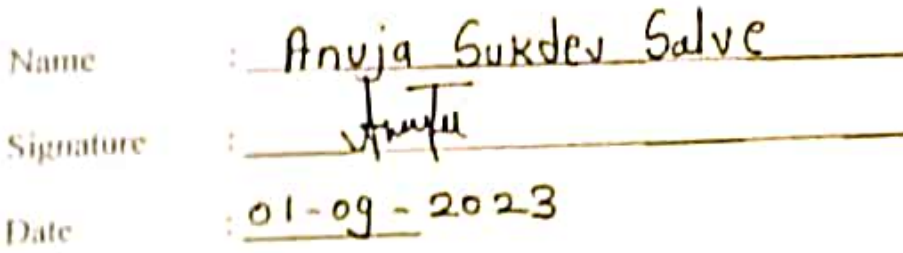 Name : Anuja Sukdev Salve
Signature :
Date : 01-09-2023